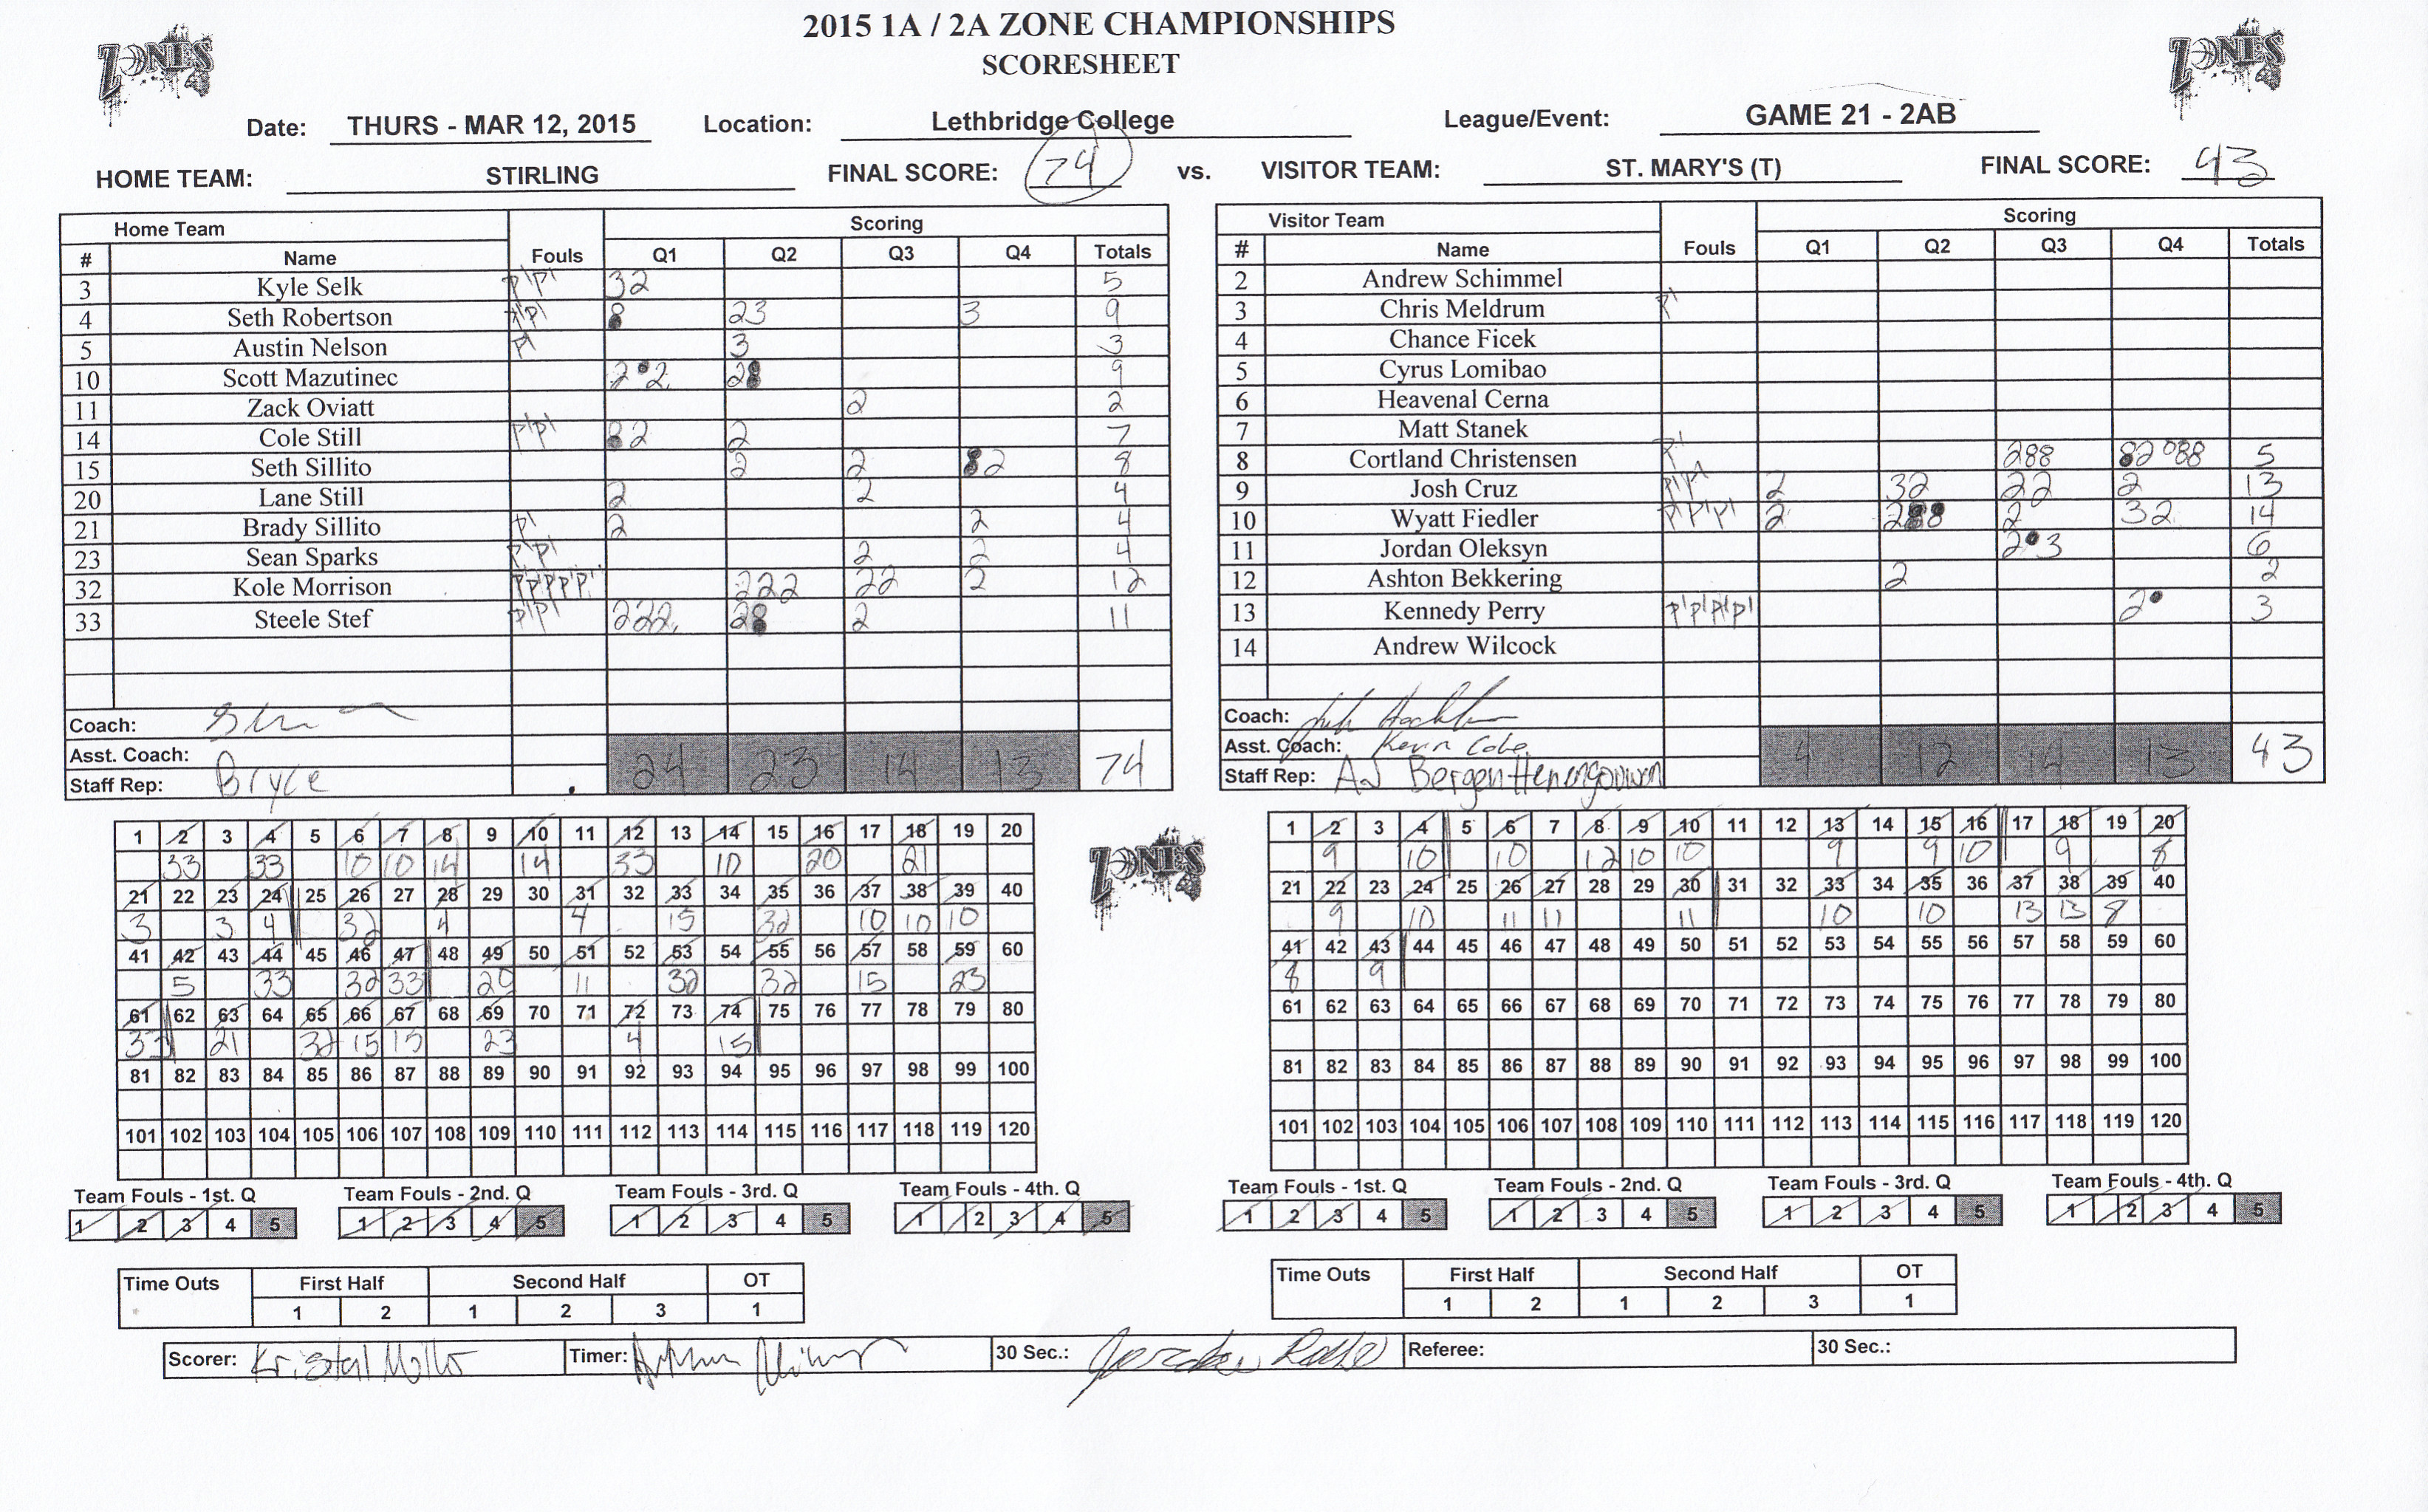 2015 1A / 2A ZONE CHAMPIONSHIPS
SCORESHEET
ZONES
ZONES
Date: THURS - MAR 12, 2015 Location: Lethbridge College League/Event: GAME 21 - 2AB
HOME TEAM: STIRLING FINAL SCORE: 74 vs. VISITOR TEAM: ST. MARY'S (T) FINAL SCORE: 43
Home Team Fouls Scoring
# Name Q1 Q2 Q3 Q4 Totals
3 Kyle Selk P1P1 32 5
4 Seth Robertson 8 23 3 9
5 Austin Nelson P1 3 3
10 Scott Mazutinec 2 2 28 9
11 Zack Oviatt 2 2
14 Cole Still P1P1 82 2 7
15 Seth Sillito 2 2 82 8
20 Lane Still 2 2 4
21 Brady Sillito P1 2 2 4
23 Sean Sparks P1P1 2 2 4
32 Kole Morrison P1P1P1P1P1 222 22 2 12
33 Steele Stef P1P1 222 28 2 11
Coach:
Asst. Coach:
Staff Rep: Bryce
24 23 14 13 74
Visitor Team Fouls Scoring
# Name Q1 Q2 Q3 Q4 Totals
2 Andrew Schimmel
3 Chris Meldrum P1
4 Chance Ficek
5 Cyrus Lomibao
6 Heavenal Cerna
7 Matt Stanek
8 Cortland Christensen P1 288 82 088 5
9 Josh Cruz 2 32 22 2 13
10 Wyatt Fiedler P1P1P1 2 288 2 32 14
11 Jordan Oleksyn 2 3 6
12 Ashton Bekkering 2 2
13 Kennedy Perry P1P1P1P1 2 3
14 Andrew Wilcock
Coach:
Asst. Coach: Kevin
Staff Rep: AJ
4 12 14 13 43
1 2 3 4 5 6 7 8 9 10 11 12 13 14 15 16 17 18 19 20
33 33 10 10 14 14 33 10 20 21
21 22 23 24 25 26 27 28 29 30 31 32 33 34 35 36 37 38 39 40
3 3 4 32 4 4 15 32 10 10 10
41 42 43 44 45 46 47 48 49 50 51 52 53 54 55 56 57 58 59 60
5 33 32 33 20 11 32 32 15 23
61 62 63 64 65 66 67 68 69 70 71 72 73 74 75 76 77 78 79 80
33 21 32 15 15 23 4 15
81 82 83 84 85 86 87 88 89 90 91 92 93 94 95 96 97 98 99 100
101 102 103 104 105 106 107 108 109 110 111 112 113 114 115 116 117 118 119 120
ZONES
1 2 3 4 5 6 7 8 9 10 11 12 13 14 15 16 17 18 19 20
9 10 10 12 10 10 9 9 10 9 8
21 22 23 24 25 26 27 28 29 30 31 32 33 34 35 36 37 38 39 40
9 10 11 11 11 10 10 13 13 8
41 42 43 44 45 46 47 48 49 50 51 52 53 54 55 56 57 58 59 60
8 9
61 62 63 64 65 66 67 68 69 70 71 72 73 74 75 76 77 78 79 80
81 82 83 84 85 86 87 88 89 90 91 92 93 94 95 96 97 98 99 100
101 102 103 104 105 106 107 108 109 110 111 112 113 114 115 116 117 118 119 120
Team Fouls - 1st. Q Team Fouls - 2nd. Q Team Fouls - 3rd. Q Team Fouls - 4th. Q
1 2 3 4 5 1 2 3 4 5 1 2 3 4 5 1 2 3 4 5
Team Fouls - 1st. Q Team Fouls - 2nd. Q Team Fouls - 3rd. Q Team Fouls - 4th. Q
1 2 3 4 5 1 2 3 4 5 1 2 3 4 5 1 2 3 4 5
Time Outs First Half Second Half OT
1 2 1 2 3 1
Time Outs First Half Second Half OT
1 2 1 2 3 1
Scorer: Kristal Timer: 30 Sec.: Referee: 30 Sec.: